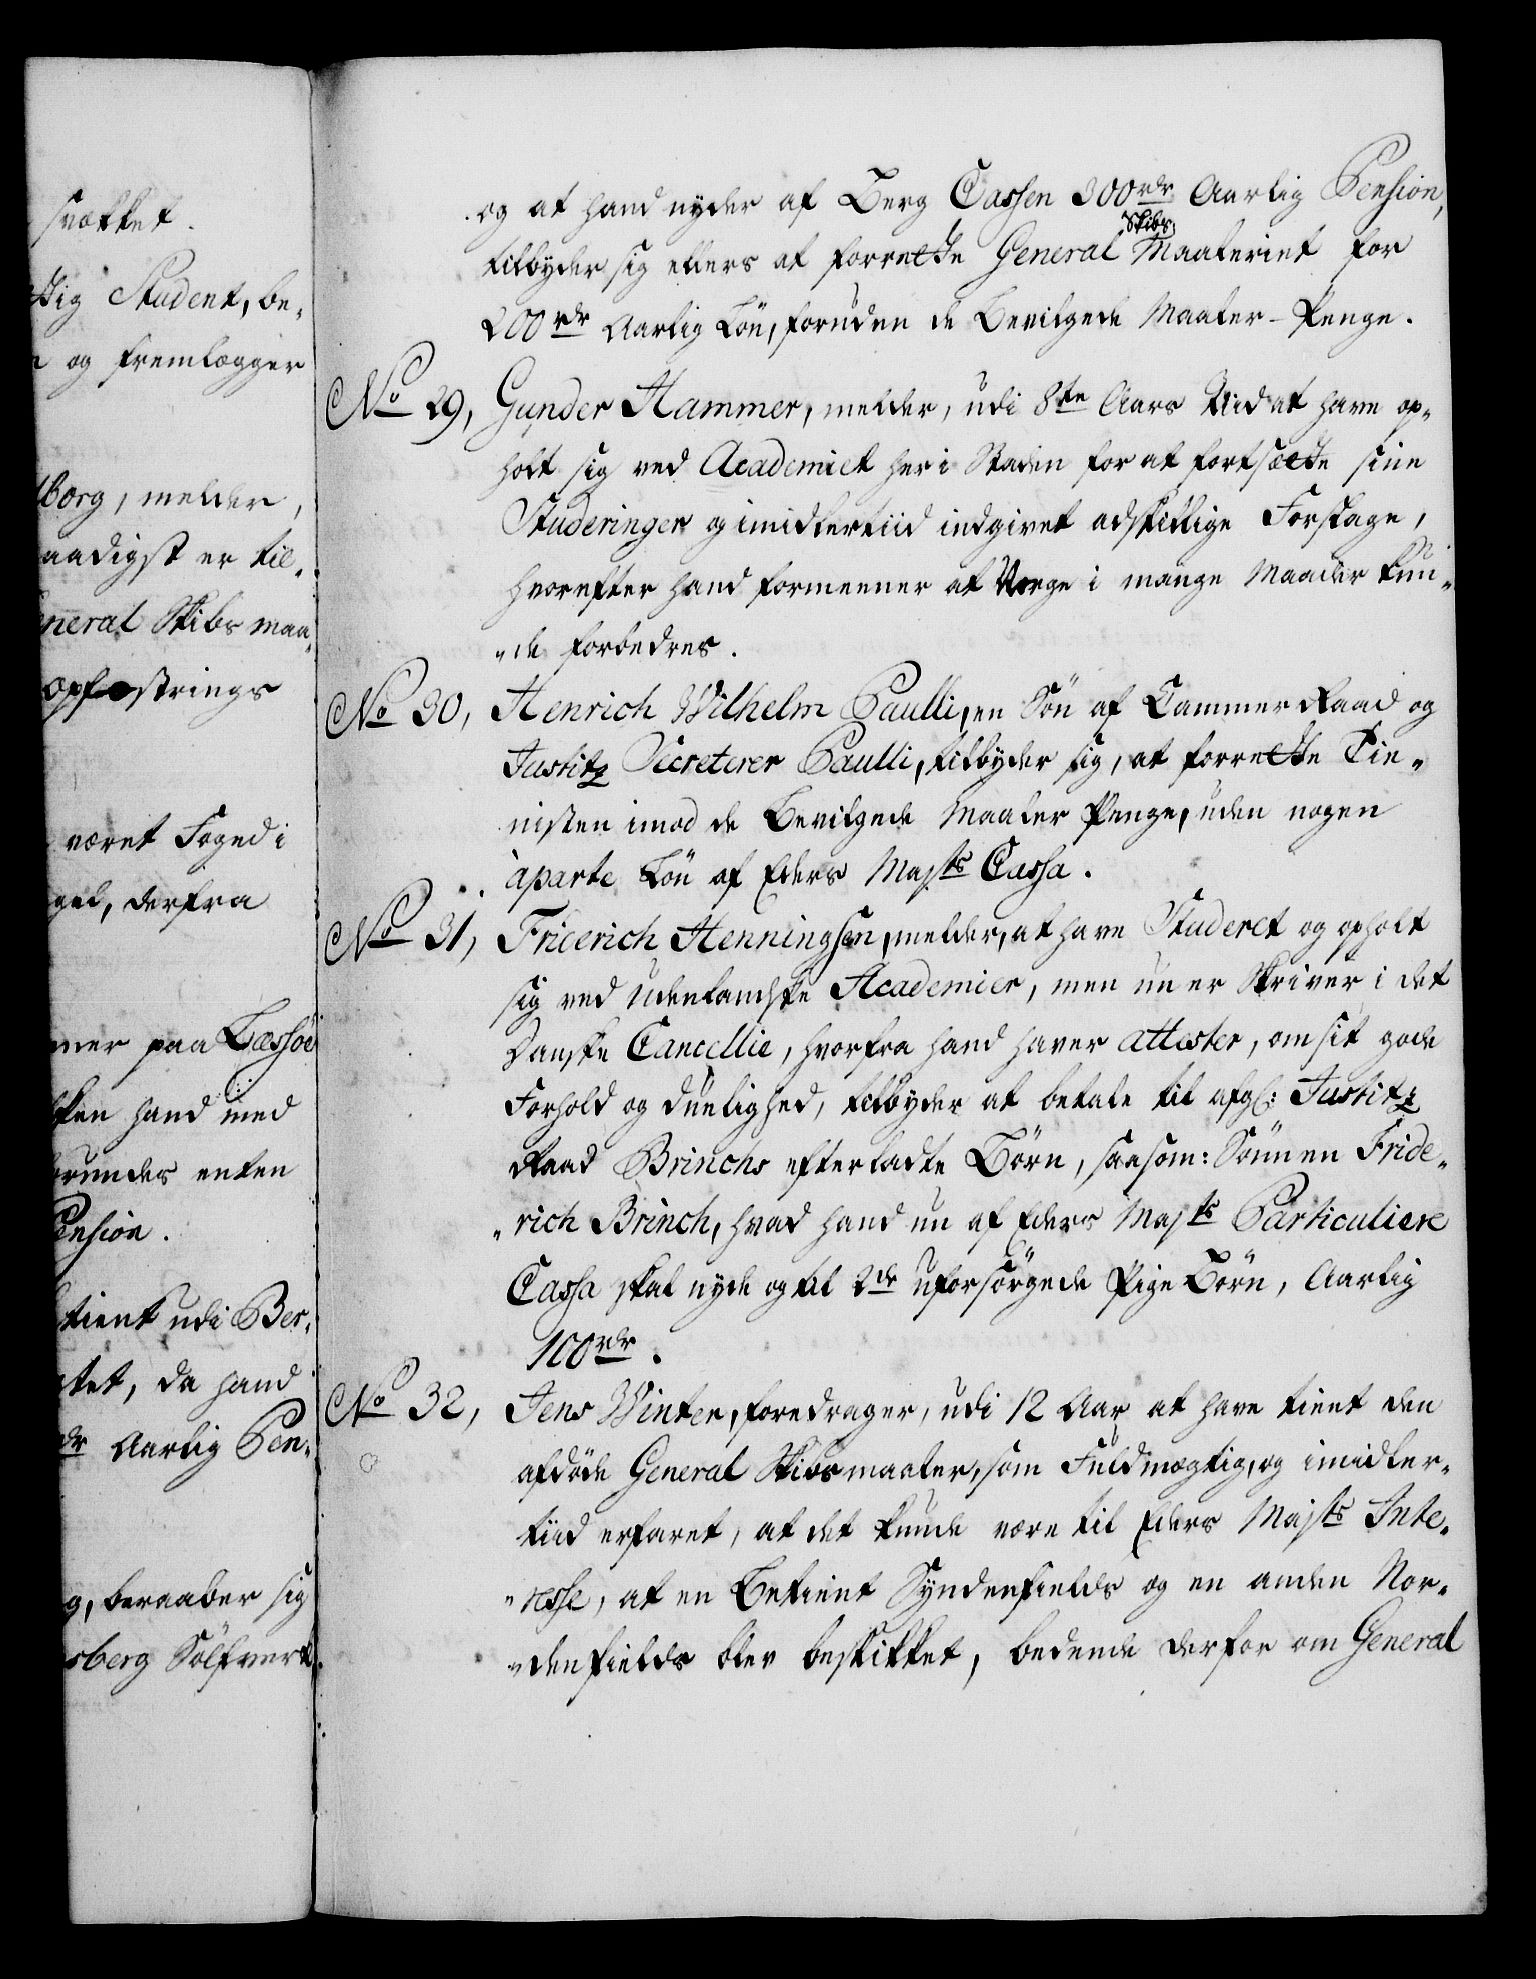 svækket.
ttig Student, be-
og fremlægger
borg, melder,
aadigst er til-
eneral Skibs maa-
opfostrings
været Foged i
ged, derfra
mer paa Læssöe
ken hand med
rundes enten
Pension.
tient udi Ber-
tet, da hand
rdr Aarlig Pen-
g, beraaber sig
sberg Sölfverk
og at hand nyder af Berg Cassen 300 rdr Aarlig Pension,
tilbyder sig ellers at forrette General Skibs Maaleriet for
200 rdr Aarlig Lön, foruden de Bevilgede Maaler-Penge.
No 29, Gunder Hammer, melder, udi 8te Aars Tiid at have op-
holt sig ved Academiet her i Staden for at fortsætte sine
Studeringer og imidlertiid indgivet adskillige Forslage,
hvorefter hand formeener at Norge i mange Maader kun-
de forbedres.
No 30, Henrich Wilhelm Paulli, en Sön af Cammer Raad og
Justitz Secreterer Paulli, tilbyder sig, at forrette Tie-
nisten imod de Bevilgede Maaler Penge, uden nogen
àparte Lön af Eders Majts Cassa.
No 31, Friderich Henningsen, melder, at have Studeret og opholt
sig ved udenlandske Academier, men nu er Skriver i det
Danske Cancellie, hvorfra hand haver attester, om sit gode
Forhold og duelighed, tilbyder at betale til afgl: Justitz
Raad Brinchs efterladte Börn, saasom: Sönnen Fride-
rich Brinch, hvad hand nu af Eders Majts Particuliere
Cassa skal nyde og til 2de uforsörgede Pige Börn, Aarlig
100 rdr.
No 32, Jens Winter, foredrager, udi 12 Aar at have tient den
afdöde General Skibsmaaler, som Fuldmægtig, og imidler-
tiid erfaret, at det kunde være til Eders Majts Inte-
resse, at en Betient Syndenfields og en anden Nor-
denfields blev beskikket, bedende derfor om General